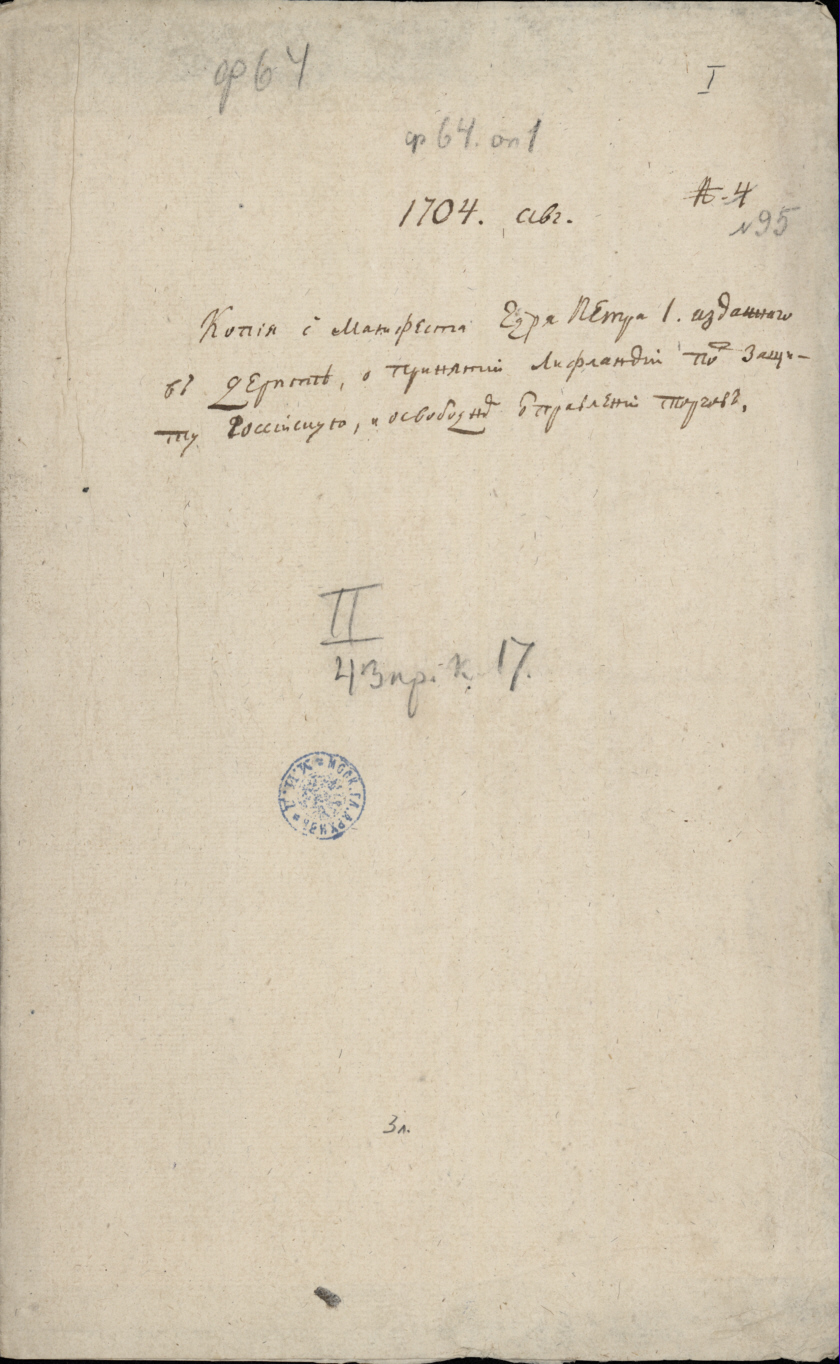 ф 64
I
ф 64. оп 1
А-4
1704. авг.
№ 95
Копія с Манифеста Цря Петра I. изданного
въ Дерптѣ, о принятии Лифляндіи под Защи-
ту Россійскую, и освобожд отправлении торговъ.
II
43 прік. 17.
3л.